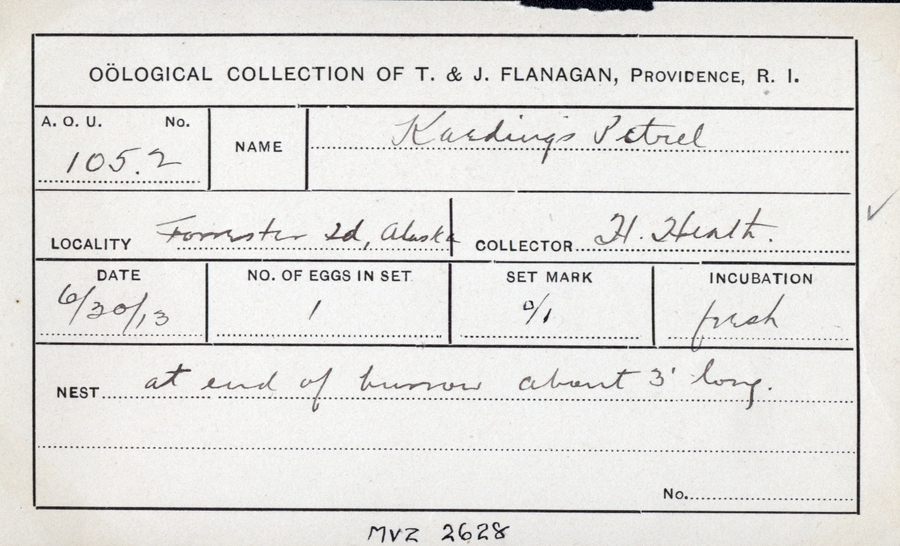 OÖLOGICAL COLLECTION OF T. & J. FLANAGAN, PROVIDENCE, R. I.
A. O. U. No.
105.2
NAME Kaeding's Petrel
LOCALITY Forrester Id, Alaska
COLLECTOR H. Heath.
DATE
6/30/13
NO. OF EGGS IN SET
1
SET MARK
0/1
INCUBATION
fresh
NEST at end of burrow about 3' long.
No.
MVZ 2628